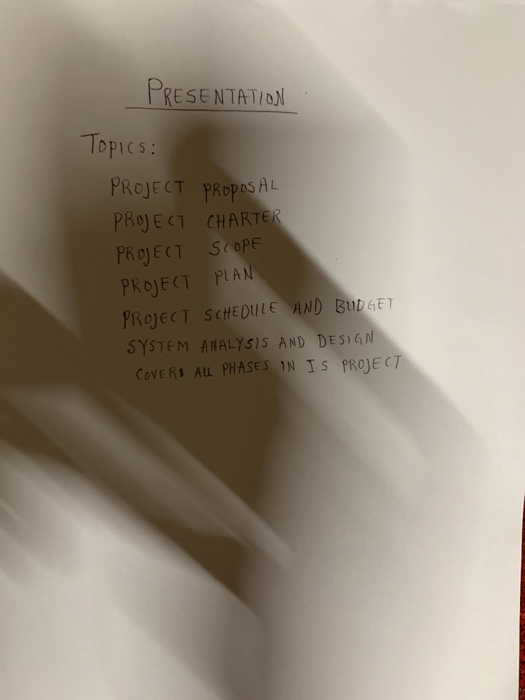 PRESENTATION
TOPICS:
PROJECT PROPOSAL
PROJECT CHARTER
PROJECT SCOPE
PROJECT PLAN
PROJECT SCHEDULE AND BUDGET
SYSTEM ANALYSIS AND DESIGN
COVERS ALL PHASES IN I.S PROJECT